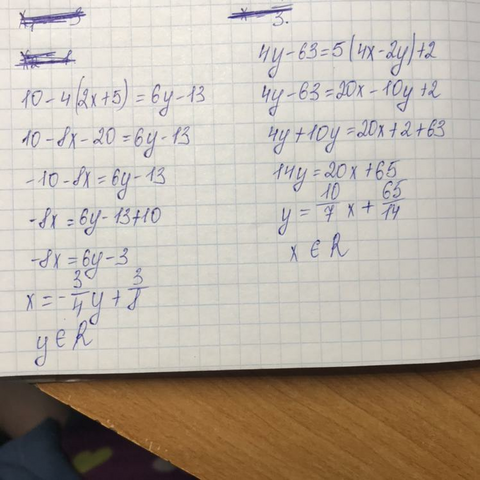 3.
10-4(2x+5)=6y-13
10-8x-20=6y-13
-10-8x=6y-13
-8x=6y-13+10
-8x=6y-3
x=-3/4y+3/8
y∈R
4y-63=5(4x-2y)+2
4y-63=20x-10y+2
4y+10y=20x+2+63
14y=20x+65
y=10/7x+65/14
x∈R